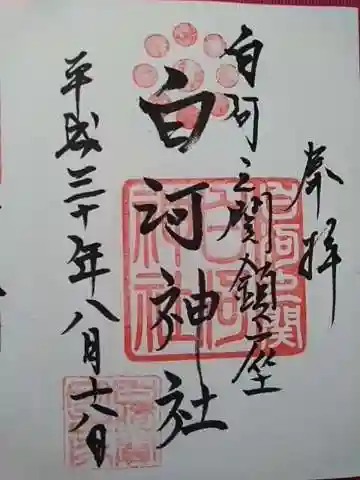 奉拝
白河之關鎮座
白河神社
平成三十年八月十八日
白河之関